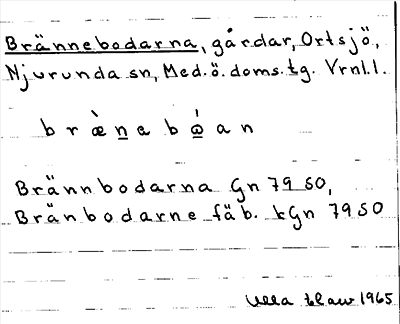 Brännebodarna, gårdar, Ortsjö,
Njurunda sn, Med. ö. doms. tg. Vrnl. l.
b r æ̀ n e b ó̲ a n
Brännbodarna Gn 79 SO,
Bränbodarne fäb. kGn 79 SO
Ulla 1965